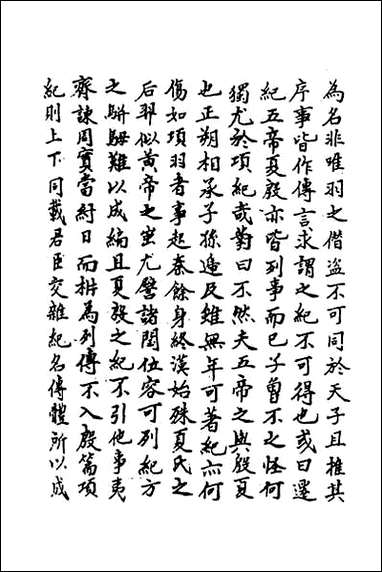 為名非唯羽之僭盜不可同於天子且推其
序事皆作傳言求謂之紀不可得也或曰遷
紀五帝夏殷亦皆列事而已子曾不之怪何
獨尤於項紀哉對曰不然夫五帝之與殷夏
也正朔相承子孫遞及雖無年可著紀亦何
傷如項羽者事起秦餘身終漢始殊夏氏之
后羿似黃帝之蚩尤譬諸閏位容可列紀方
之駢拇難以成編且夏殷之紀不引他事夷
齊諫周實當紂日而枿為列傳不入殷篇項
紀則上下同載君臣交雜紀名傳體所以成